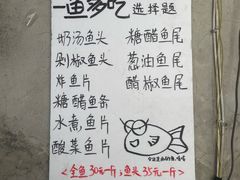 一鱼多吃 选择题
奶汤鱼头
剁椒鱼头
炸鱼片
糖醋鱼条
水煮鱼片
酸菜鱼片
糖醋鱼尾
葱油鱼尾
醋椒鱼尾
<全鱼30元一斤;鱼头35元一斤>